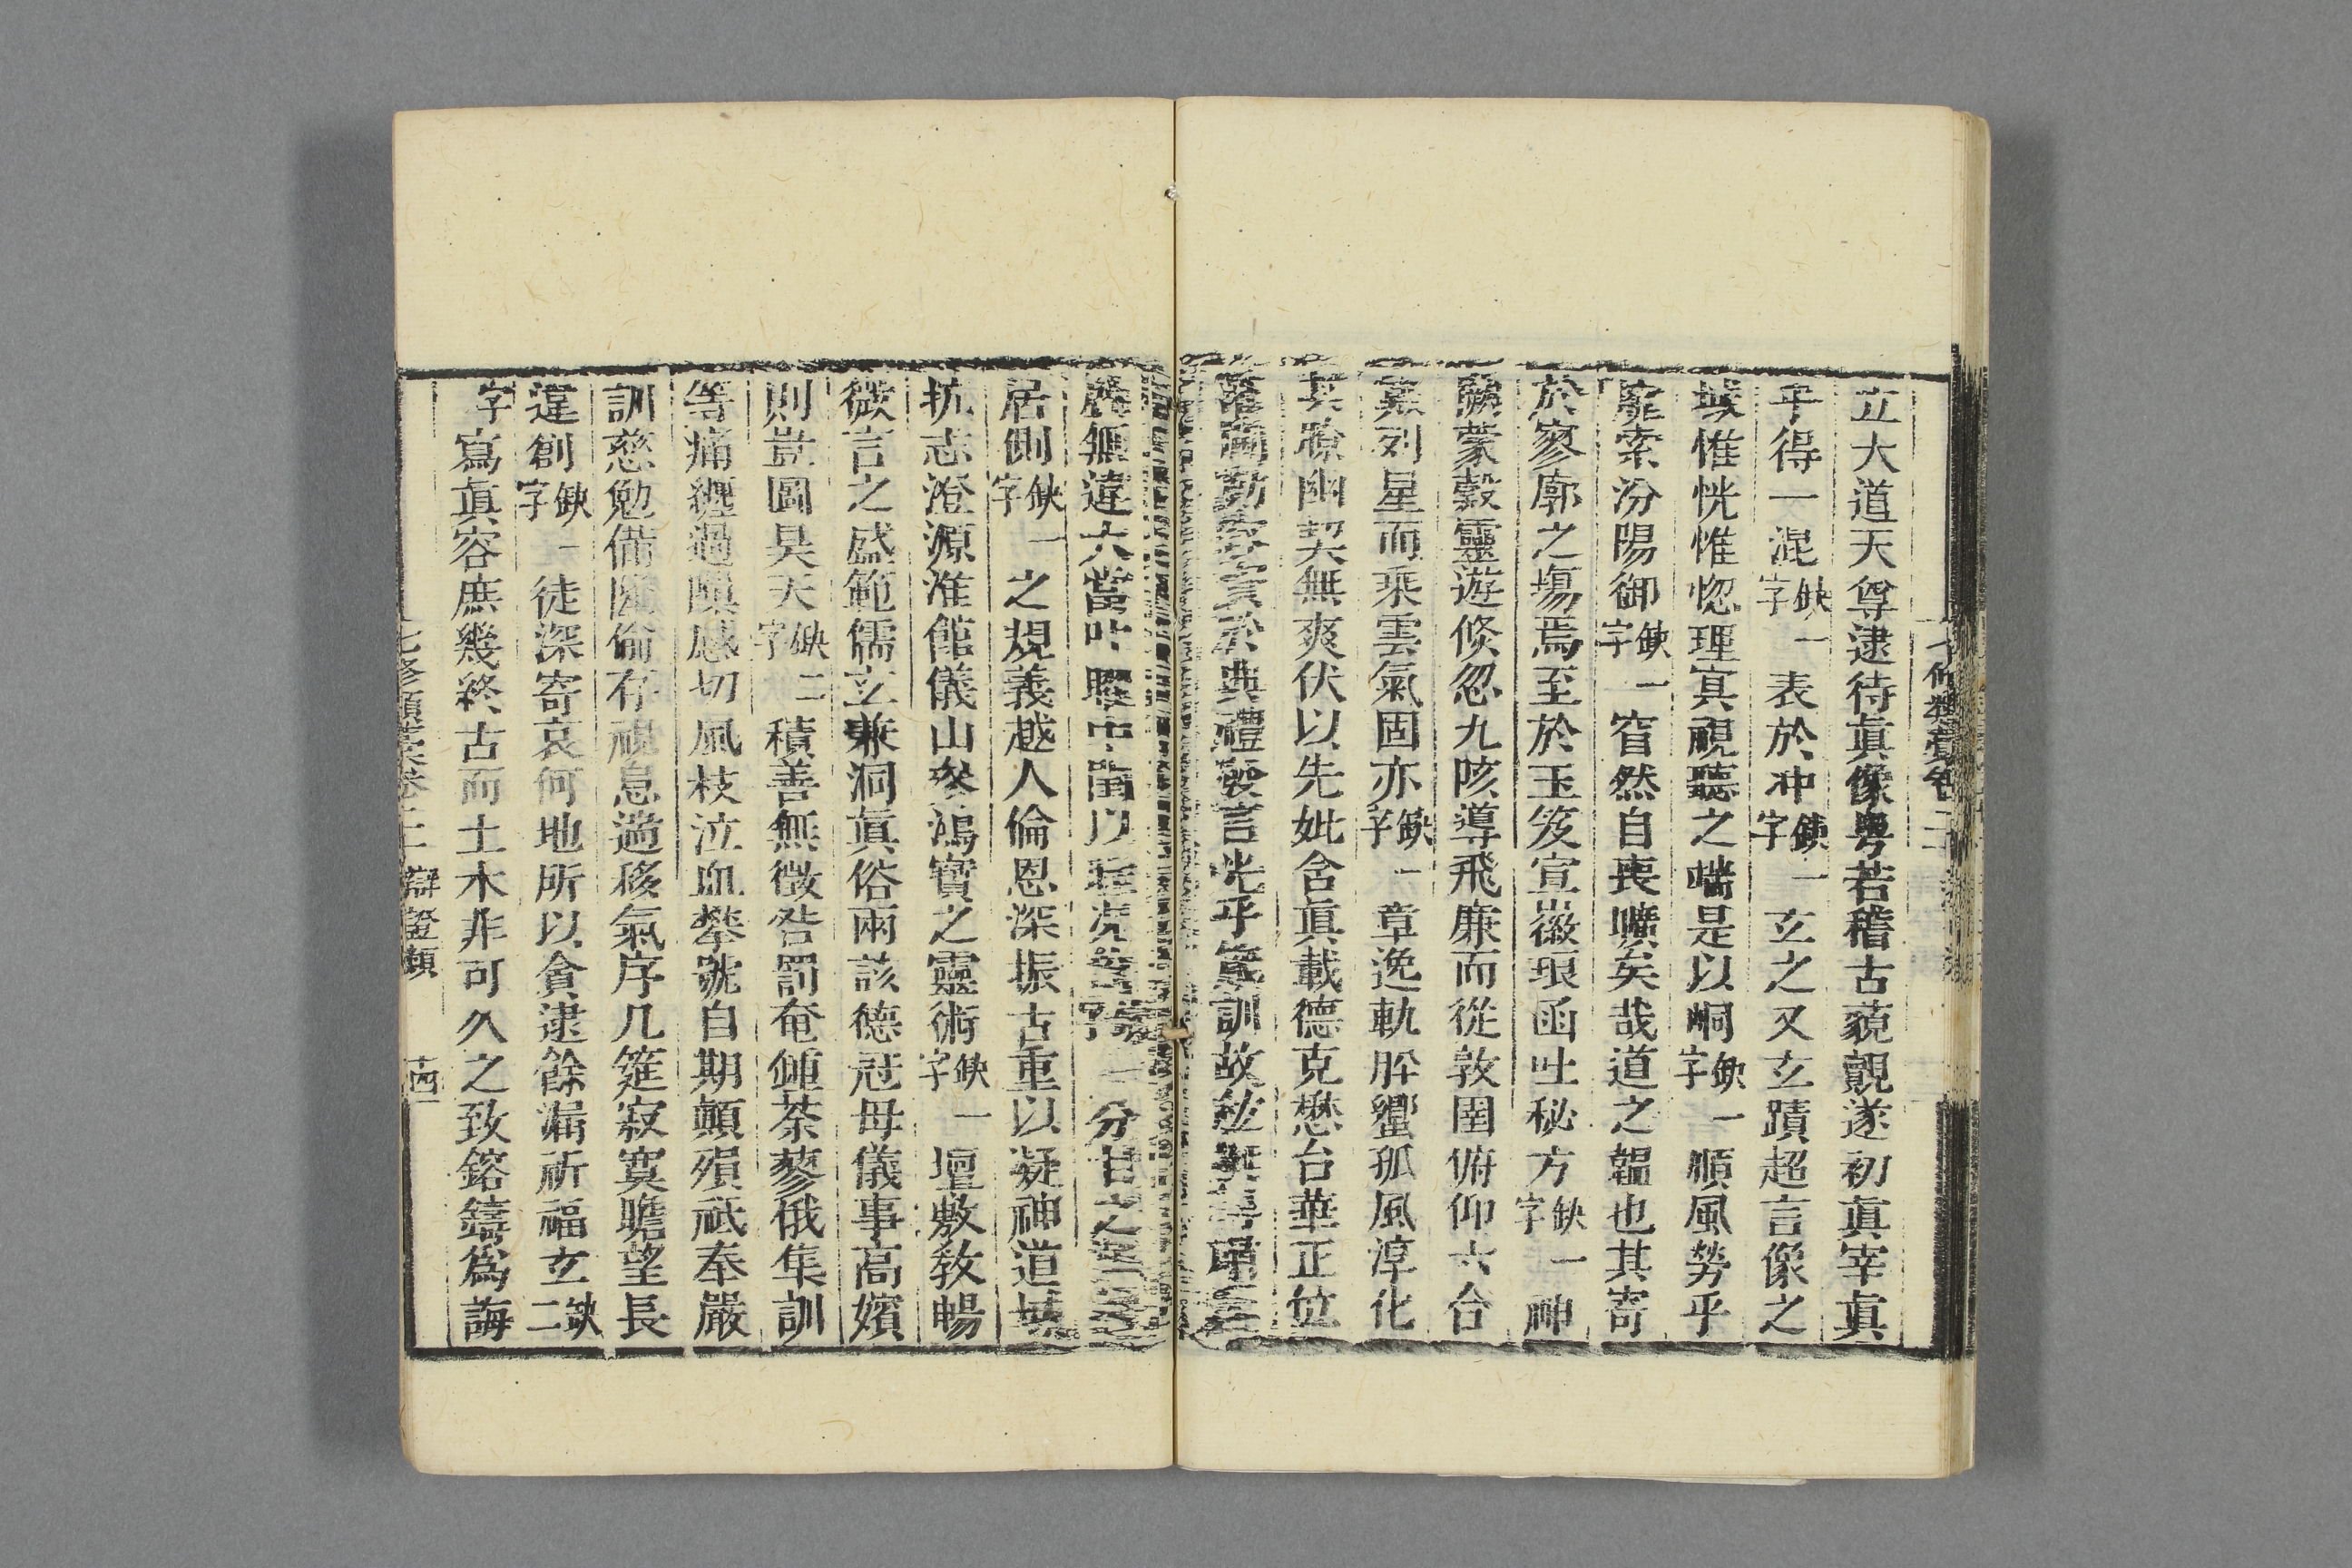 立大道天尊逮待真像粤若稽古藐覿遂初真宰真
乎得一混缺一字表於冲缺一字玄之又玄蹟超言像之
域惟恍惟惚理寘視聽之端是以峒缺一字順風勞乎
靡索汾陽御缺一字窅然自喪曠矣哉道之韞也其寄
於寥廓之塲焉至於玉笈宣徽琅函吐秘方缺一字神
闕蒙轂靈遊倐忽九陔導飛廉而從敦圉俯仰六合
真列星而乘雲氣固亦缺一字章逸軌肸蠁孤風淳化
其隙幽契無爽伏以先妣含真載德克懋台華正位
典禮發言光乎箴訓故
無違大當叶曜中闈以分甘之
居側缺一字之規義越人倫恩深振古重以凝神道域
抗志澄源淮館儀山參鴻寶之靈術缺一字壇敷教暢
微言之盛範儒玄兼洞真俗兩該德冠母儀事高嬪
則豈圖昊天缺二字積善無徵咎罰奄鍾荼蓼俄集訓
等痛纏過隙感切風枝泣血攀號自期顛殞祇奉嚴
訓慈勉備隆偷存視息遄移氣序几筵寂寞瞻望長
違創缺一字徒深寄哀何地所以貪逮餘漏祈福玄缺二
字寫真容庶幾終古而土木非可久之致鎔鑄爲誨
七修類藁卷二十 辯證類 十四